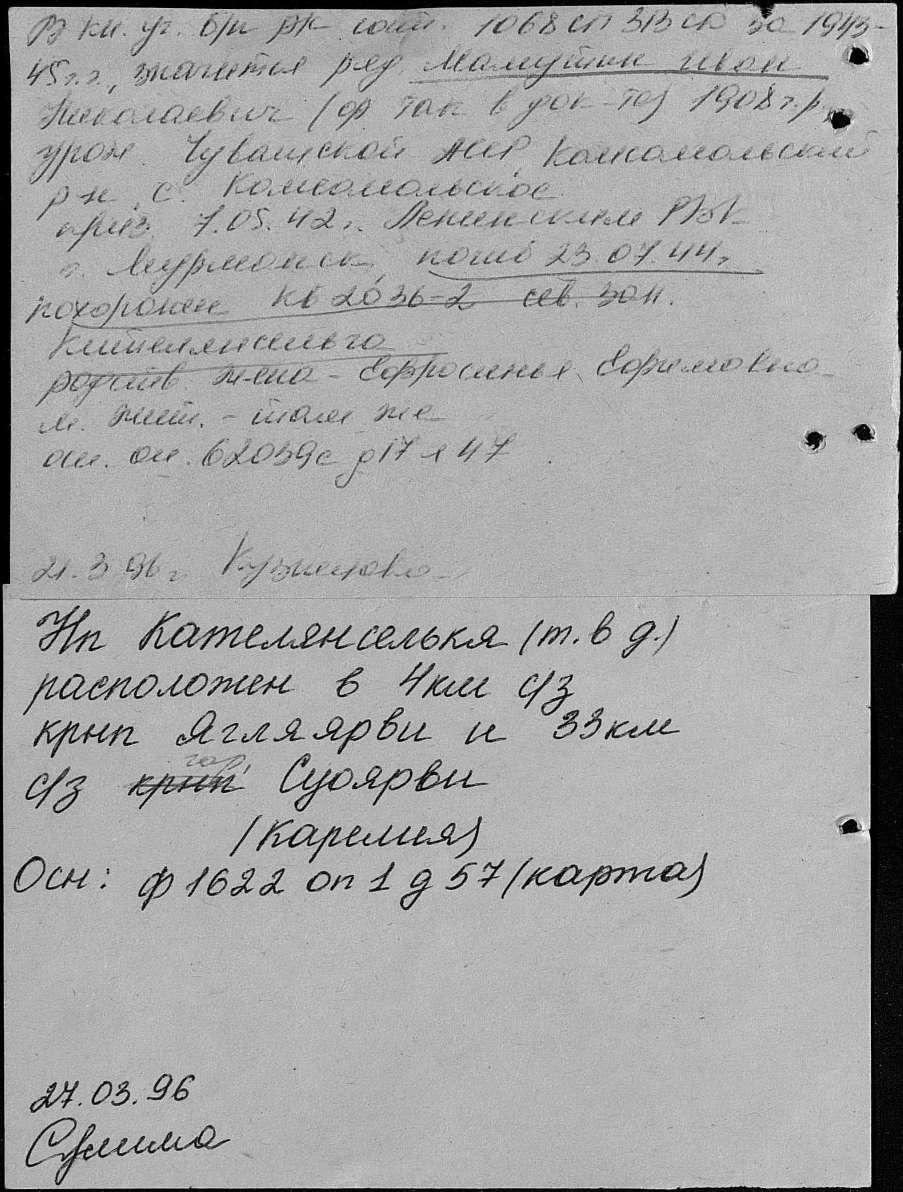 В кн. уч. б/п р-к сост. 1068 сп 313 сд за 1943-
45 г.г., значится ряд. Мамуткин Иван
Николаевич (ф. так в док-те) 1908 г.р.,
урож. Чувашской АССР, Комсомольский
р-н, с. Комсомольское
призв. 7.05.42 г. Ленинским РВК
г. Мурманск, погиб 23.07.44 г.
похоронен кв 2036-2 сев. зап.
родств. жена - Ефросинья Ефремовна
м. жит. - там же
оп. 62039с д 17 л 47
21.3.96 г.
Нп Кателянселькя (т. в д.)
расположен в 4 км с/з
крнп Ягляярви и 33 км
с/з крнп гор. Суоярви
(Карелия)
Осн: ф 1622 оп 1 д 57 (карта)
27.03.96
Сулима